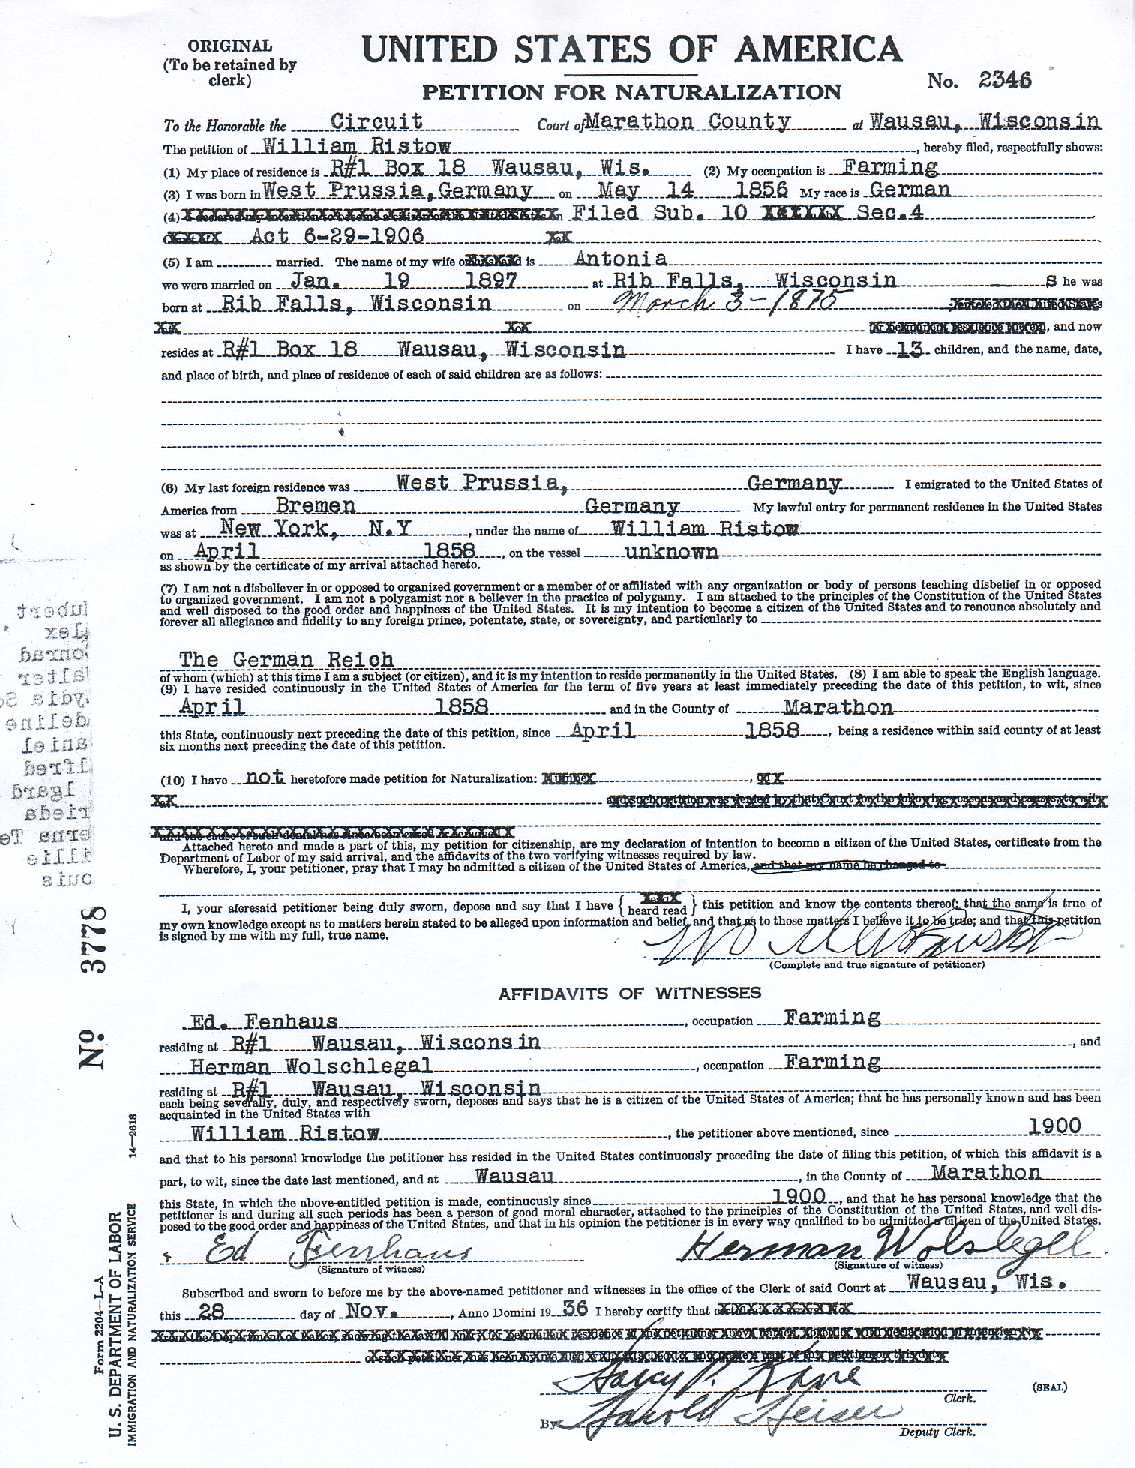 ORIGINAL
(To be retained by
clerk)
UNITED STATES OF AMERICA
PETITION FOR NATURALIZATION
No. 2346
To the Honorable the Circuit Court of Marathon County at Wausau, Wisconsin
The petition of William Ristow, hereby filed, respectfully shows:
(1) My place of residence is R#1 Box 18 Wausau, Wis. (2) My occupation is Farming
(3) I was born in West Prussia, Germany on May 14 1856 My race is German
(4) Filed Sub. 10 Sec.4
Act 6-29-1906
(5) I am married. The name of my wife is Antonia
we were married on Jan. 19 1897 at Rib Falls, Wisconsin S he was
born at Rib Falls, Wisconsin on March 3-1875
, and now
resides at R#1 Box 18 Wausau, Wisconsin I have 13 children, and the name, date,
and place of birth, and place of residence of each of said children are as follows:
(6) My last foreign residence was West Prussia, Germany I emigrated to the United States of
America from Bremen Germany My lawful entry for permanent residence in the United States
was at New York, N.Y, under the name of William Ristow
on April 1858, on the vessel unknown
as shown by the certificate of my arrival attached hereto.
(7) I am not a disbeliever in or opposed to organized government or a member of or affiliated with any organization or body of persons teaching disbelief in or opposed
to organized government. I am not a polygamist nor a believer in the practice of polygamy. I am attached to the principles of the Constitution of the United States
and well disposed to the good order and happiness of the United States. It is my intention to become a citizen of the United States and to renounce absolutely and
forever all allegiance and fidelity to any foreign prince, potentate, state, or sovereignty, and particularly to
The German Reich
of whom (which) at this time I am a subject (or citizen), and it is my intention to reside permanently in the United States. (8) I am able to speak the English language.
(9) I have resided continuously in the United States of America for the term of five years at least immediately preceding the date of this petition, to wit, since
April 1858 and in the County of Marathon
this State, continuously next preceding the date of this petition, since April 1858, being a residence within said county of at least
six months next preceding the date of this petition.
(10) I have not heretofore made petition for Naturalization:
Attached hereto and made a part of this, my petition for citizenship, are my declaration of intention to become a citizen of the United States, certificate from the
Department of Labor of my said arrival, and the affidavits of the two verifying witnesses required by law.
Wherefore, I, your petitioner, pray that I may be admitted a citizen of the United States of America, and that my name be changed to
I, your aforesaid petitioner being duly sworn, depose and say that I have { heard read } this petition and know the contents thereof; that the same is true of
my own knowledge except as to matters herein stated to be alleged upon information and belief, and that as to those matters I believe it to be true; and that this petition
is signed by me with my full, true name.
(Complete and true signature of petitioner)
AFFIDAVITS OF WITNESSES
Ed. Fenhaus, occupation Farming
residing at R#1 Wausau, Wisconsin, and
Herman Wolschlegal, occupation Farming
residing at R#1 Wausau, Wisconsin
each being severally, duly, and respectively sworn, deposes and says that he is a citizen of the United States of America; that he has personally known and has been
acquainted in the United States with
William Ristow, the petitioner above mentioned, since 1900
and that to his personal knowledge the petitioner has resided in the United States continuously preceding the date of filing this petition, of which this affidavit is a
part, to wit, since the date last mentioned, and at Wausau, in the County of Marathon
this State, in which the above-entitled petition is made, continuously since 1900, and that he has personal knowledge that the
petitioner is and during all such periods has been a person of good moral character, attached to the principles of the Constitution of the United States, and well dis-
posed to the good order and happiness of the United States, and that in his opinion the petitioner is in every way qualified to be admitted a citizen of the United States.
Ed Fenhaus Herman Wolslegel
(Signature of witness) (Signature of witness)
Subscribed and sworn to before me by the above-named petitioner and witnesses in the office of the Clerk of said Court at Wausau, Wis.
this 28 day of Nov., Anno Domini 19 36 I hereby certify that
Harry P. Kane
Clerk.
(SEAL)
By Harold Heiser
Deputy Clerk.
No. 3778
14—2618
Form 2204—L-A
U. S. DEPARTMENT OF LABOR
IMMIGRATION AND NATURALIZATION SERVICE